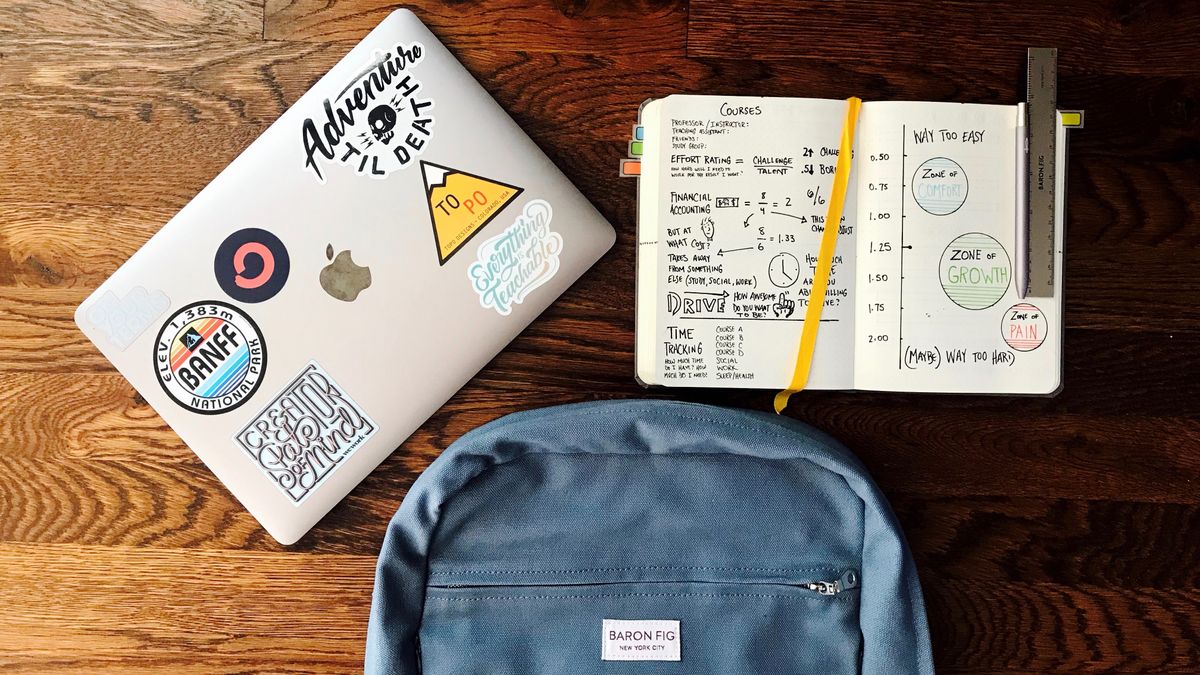 Adventure
'TIL DEATH
TO PO
TOPO DESIGNS • COLORADO, USA
Everything
is
Teachable
ELEV. 1,383m
BANFF
NATIONAL PARK
CREATOR
Pals
of Mind
wework
COURSES
PROFESSOR / INSTRUCTOR:
TEACHING ASSISTANT:
FRIENDS:
STUDY GROUP:
EFFORT RATING = CHALLENGE
TALENT
HOW HARD WILL I NEED TO
WORK FOR THE RESULT I WANT.
2↑
.5↓
FINANCIAL
ACCOUNTING
= 8
4
= 2
6/6
BUT AT
WHAT COST?
8
6
= 1.33
TAKES AWAY
FROM SOMETHING
ELSE (STUDY, SOCIAL, WORK)
DRIVE
HOW AWESOME
DO YOU WANT
TO BE?
HOW MUCH
TIME
ARE YOU
TIME
TRACKING
HOW MUCH TIME
DO I HAVE? HOW
MUCH DO I NEED?
COURSE A
COURSE B
COURSE C
COURSE D
SOCIAL
WORK
SLEEP/HEALTH
WAY TOO EASY
0.50
0.75
1.00
1.25
1.50
1.75
2.00
ZONE OF
COMFORT
ZONE OF
GROWTH
ZONE OF
PAIN
(MAYBE) WAY TOO HARD
BARON FIG
BARON FIG
NEW YORK CITY